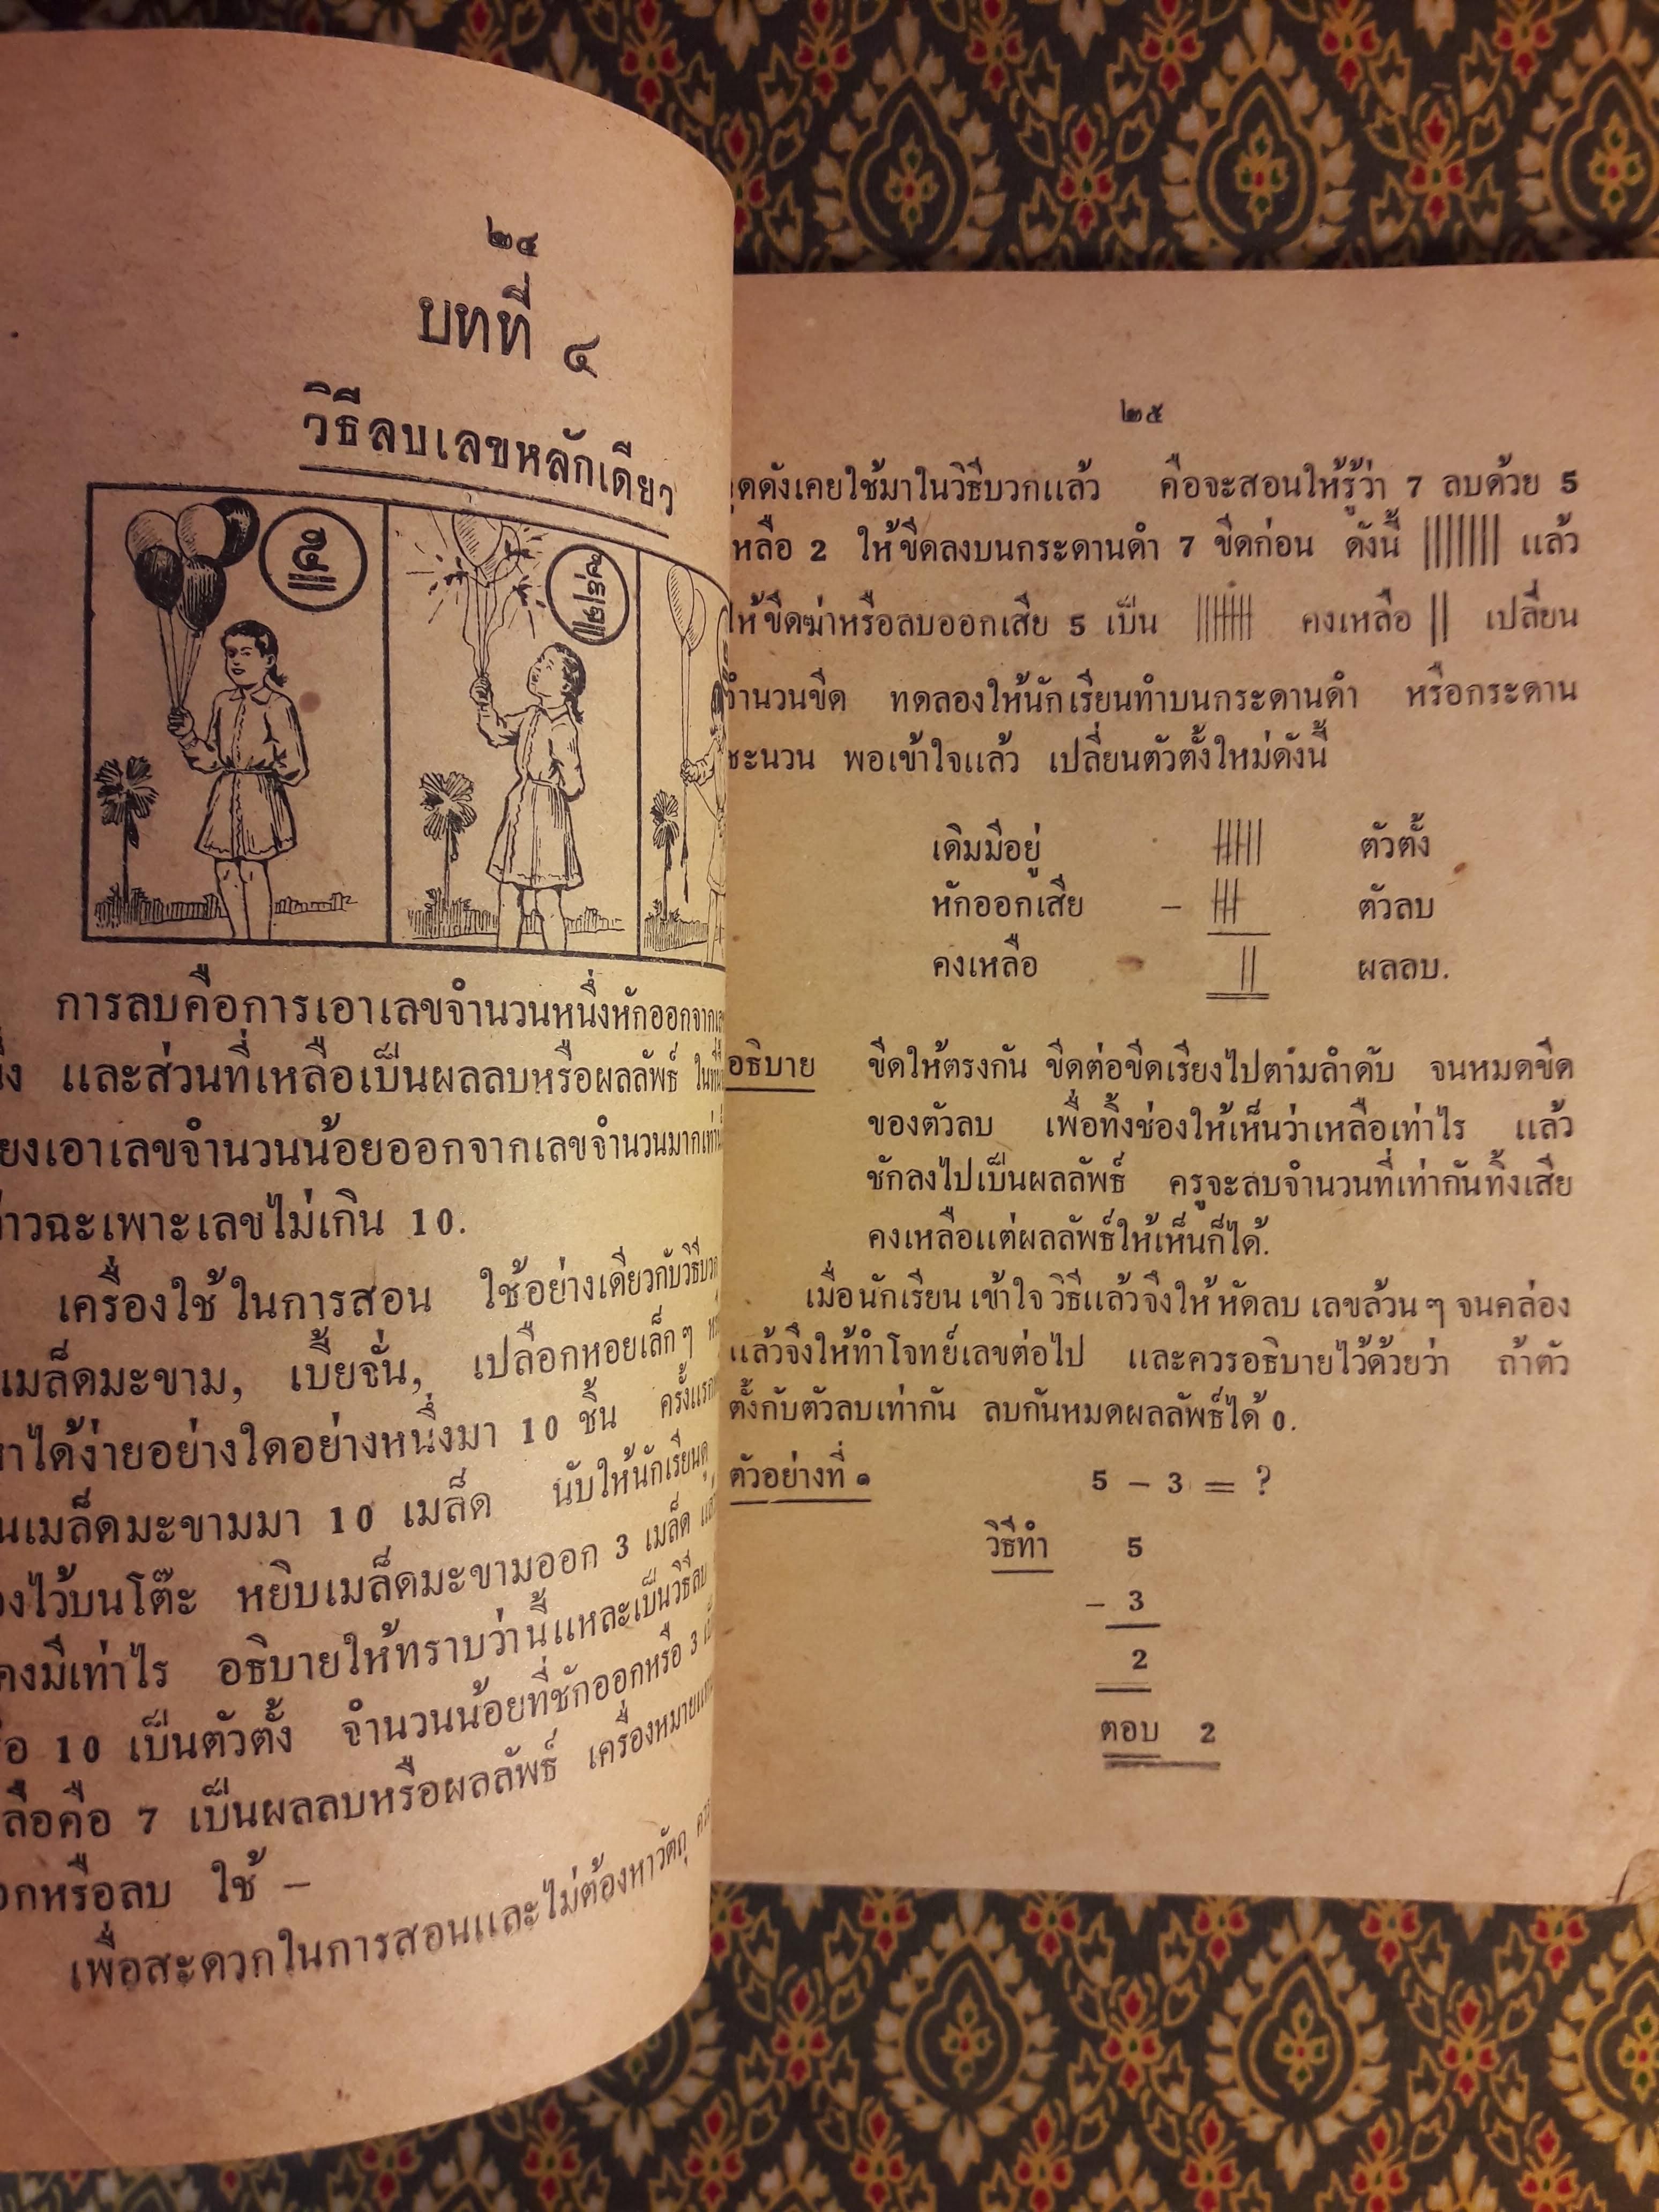 ๒๔
บทที่ ๔
วิธีลบเลขหลักเดียว
การลบคือการเอาเลขจำนวนหนึ่งหักออกจาก
และส่วนที่เหลือเป็นผลลบหรือผลลัพธ์
เอาเลขจำนวนน้อยออกจากเลขจำนวนมาก
ฉะเพาะเลขไม่เกิน 10.
เครื่องใช้ในการสอน ใช้อย่างเดียวกับวิธีบวก
เมล็ดมะขาม, เบี้ยจั่น, เปลือกหอยเล็กๆ
หาได้ง่ายอย่างใดอย่างหนึ่งมา 10 ชิ้น ครั้งแรก
เมล็ดมะขามมา 10 เมล็ด นับให้นักเรียนดู
ไว้บนโต๊ะ หยิบเมล็ดมะขามออก 3 เมล็ด
คงมีเท่าไร อธิบายให้ทราบว่านี้แหละเป็นวิธีลบ
10 เป็นตัวตั้ง จำนวนน้อยที่ชักออกหรือ 3
คือ 7 เป็นผลลบหรือผลลัพธ์ เครื่องหมาย
หรือลบ ใช้ –
เพื่อสะดวกในการสอนและไม่ต้องหาวัตถุ
๒๕
ดังเคยใช้มาในวิธีบวกแล้ว คือจะสอนให้รู้ว่า 7 ลบด้วย 5
เหลือ 2 ให้ขีดลงบนกระดานดำ 7 ขีดก่อน ดังนี้ ||||||| แล้ว
ให้ขีดฆ่าหรือลบออกเสีย 5 เป็น คงเหลือ || เปลี่ยน
จำนวนขีด ทดลองให้นักเรียนทำบนกระดานดำ หรือกระดาน
ชะนวน พอเข้าใจแล้ว เปลี่ยนตัวตั้งใหม่ดังนี้
เดิมมีอยู่ ||||| ตัวตั้ง
หักออกเสีย – ||| ตัวลบ
คงเหลือ || ผลลบ.
อธิบาย ขีดให้ตรงกัน ขีดต่อขีดเรียงไปตามลำดับ จนหมดขีด
ของตัวลบ เพื่อทิ้งช่องให้เห็นว่าเหลือเท่าไร แล้ว
ชักลงไปเป็นผลลัพธ์ ครูจะลบจำนวนที่เท่ากันทิ้งเสีย
คงเหลือแต่ผลลัพธ์ให้เห็นก็ได้.
เมื่อนักเรียนเข้าใจวิธีแล้วจึงให้หัดลบ เลขล้วนๆ จนคล่อง
แล้วจึงให้ทำโจทย์เลขต่อไป และควรอธิบายไว้ด้วยว่า ถ้าตัว
ตั้งกับตัวลบเท่ากัน ลบกันหมดผลลัพธ์ได้ 0.
ตัวอย่างที่ ๑ 5 – 3 = ?
วิธีทำ 5
– 3
2
ตอบ 2